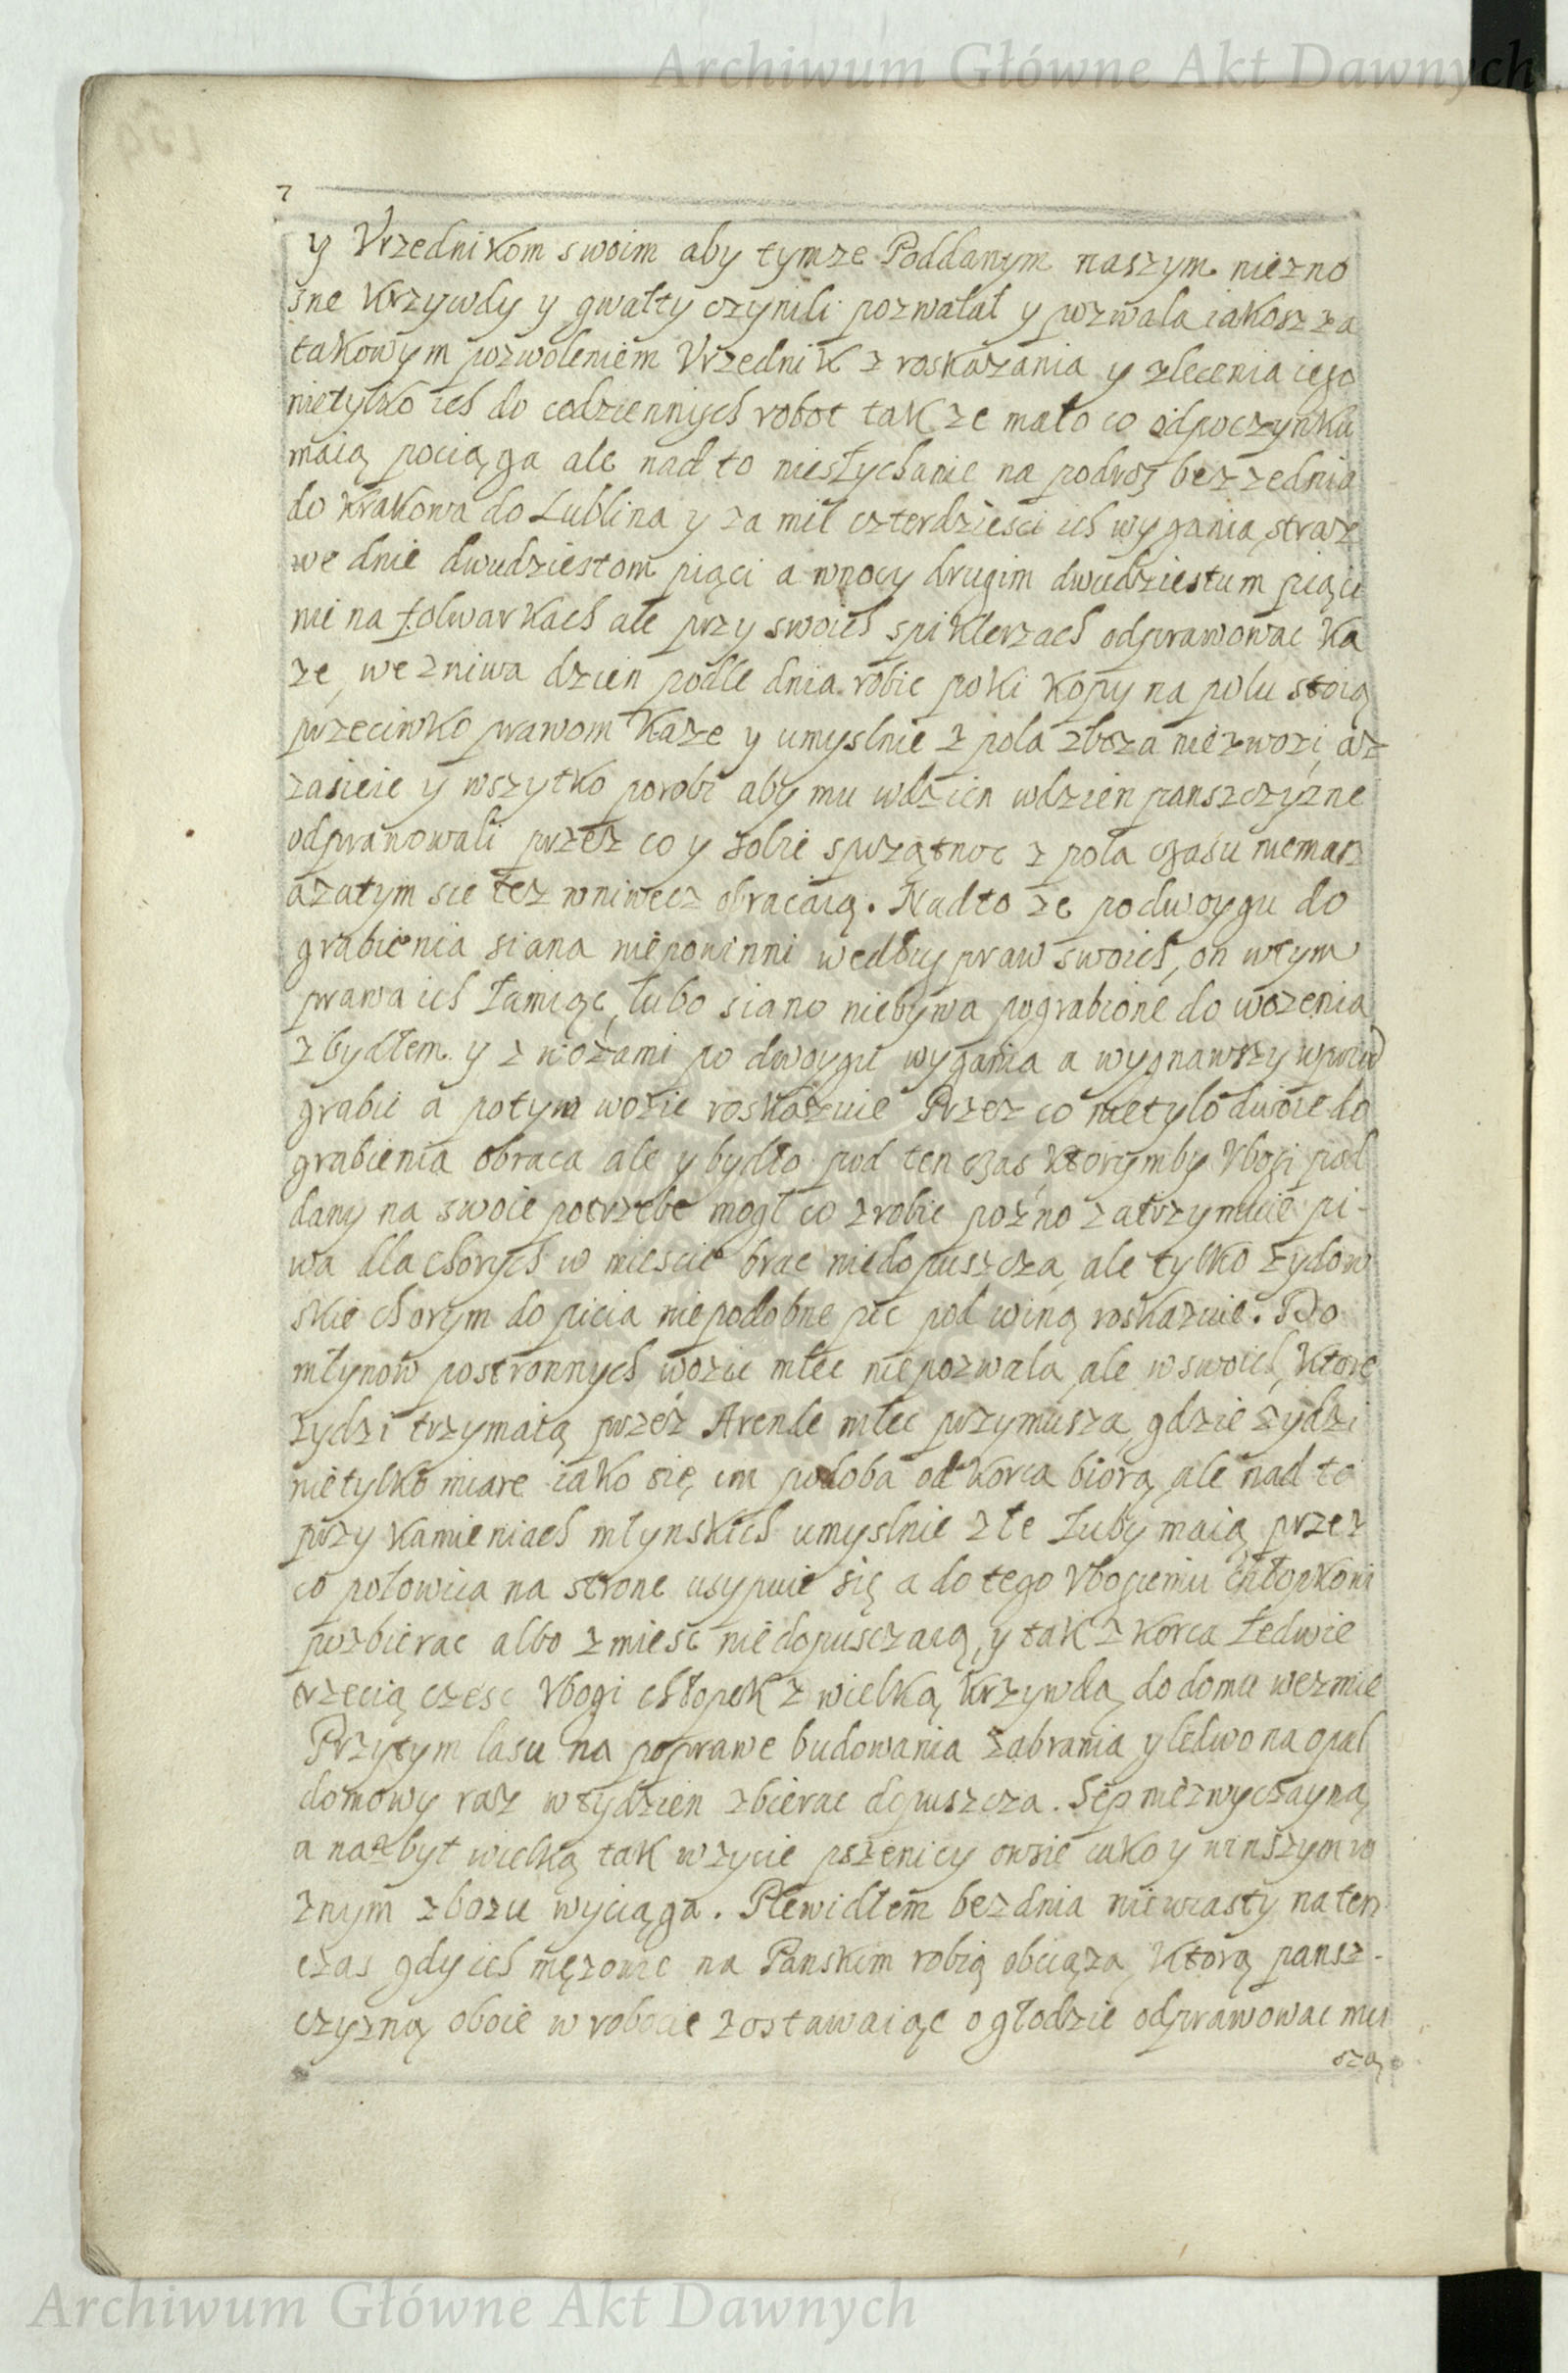 Archiwum Główne Akt Dawnych
7
y Vrzednikom swoim aby tymze Poddanym naszym niezno
sne Krzywdy y gwałty czynili pozwalał y pozwala iakosz za
takowym pozwoleniem Vrzednik z roskazania y zlecenia iego
nietylko ich do codziennych robot tak ze mało co odpoczynku
maią pociąga ale nad to niesłychanie na podroż
do Krakowa do Lublina y za mil czterdziesci ich wygania, straz
we dnie dwudziestom piąci a wnocy drugim dwudziestum piąci
nie na folwarkach ale przy swoich spiklerzach odprawowac ka
ze, we zniwa dzien podle dnia robic poki kopy na polu stoią
przeciwko prawom kaze y umyslnie z pola zboza niezwozi, az
zasieie y wszytko porobi aby mu wdzien wdzien panszczyzne
odprawowali przez co y sobie sprzątnoc z pola czasu niemaią
azatym sie tez wniwecz obracaią. Nadto ze podwoygu do
grabienia siana niepowinni według praw swoich, on wtym
prawa ich łamiąc, lubo siano niebywa pograbione do wozenia
z bydłem y z wozami po dwoygu wygania a wygnawszy wprzod
grabic a potym wozic roskazuie Przez co nietylo dwoie do
grabienia obraca ale y bydło pod ten czas ktorymby Vbogi pod
dany na swoie potrzebe mogł co zrobic pozno zatrzymuie pi-
wa dla chorych w miescie brac niedopuszcza, ale tylko zydow
skie chorym do picia niepodobne pic pod winą roskazuie. Do
młynow postronnych wozic mlec niepozwala, ale w swoich, Ktore
zydzi trzymaią przez Arende mlec przymusza, gdzie zydzi
nietylko miare iako się im podoba od korca biorą, ale nad to
przy kamieniach młynskich umyslnie złe łuby maią przez
co połowica na strone usypuie się a do tego Vbogiemu chłopkowi
pozbierac albo zmiesc niedopusczaią, y tak z korca ledwie
trzecią czesc Vbogi chłopek z wielką krzywdą do domu wezmie
Przytym lasu na poprawe budowania zabrania y ledwo na opał
domowy raz w tydzien zbierac dopuszcza. Sep niezwyczayną
a nazbyt wielką tak w zycie pszenicy owsie iako y winszym ro
znym zbozu wyciąga. Plewidłem bez dnia niewiasty na ten
czas gdy ich mężowie na Panskim robią obciąza, Ktorą pansz-
czyzną oboie w robocie zostawaiąc o głodzie odprawowac mu
szą
Archiwum Główne Akt Dawnych